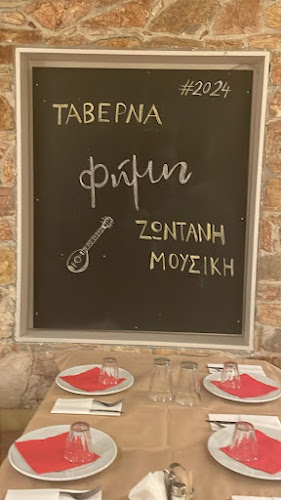 #2024
ΤΑΒΕΡΝΑ
φήμη
ΖΩΝΤΑΝΗ
ΜΟΥΣΙΚΗ